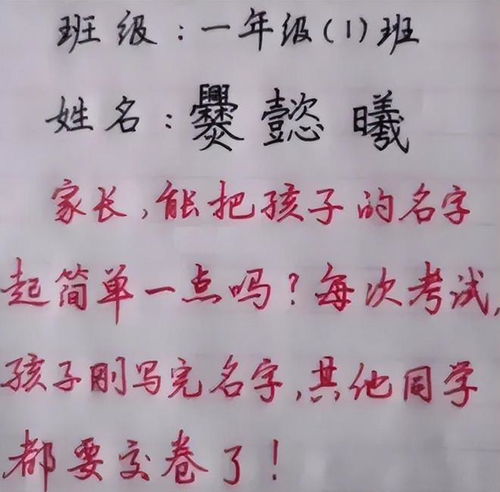 班级：一年级(1)班
姓名：爨懿曦
家长，能把孩子的名字
起简单一点吗？每次考试，
孩子刚写完名字，其他同学
都要交卷了！